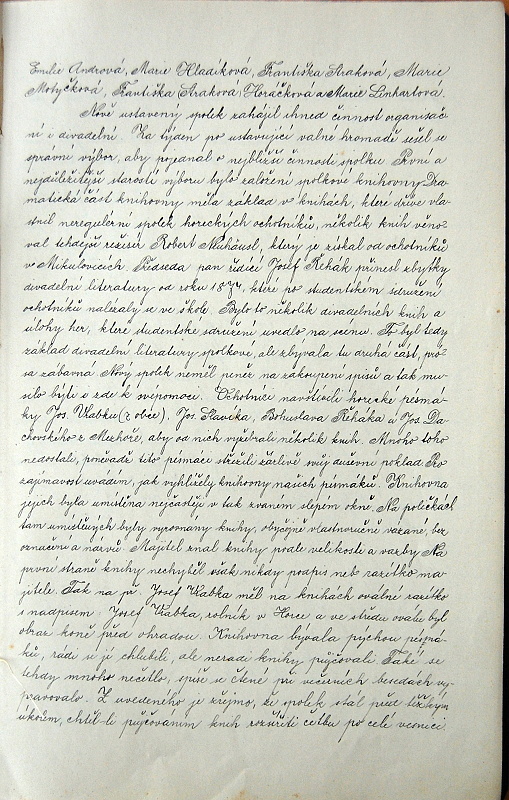 Emilie Andrová, Marie Hladíková, Františka Straková, Marie
Motyčková, Františka (Straková) Horáčková a Marie Linhartová.
Nově ustavený spolek zahájil ihned činnost organisač-
ní i divadelní. Za týden po ustavující valné hromadě sešel se
správní výbor, aby pojednal o nejbližší činnosti spolku. První a
nejdůležitější starostí výboru bylo založení spolkové knihovny. Dra-
matická část knihovny měla základ v knihách, které dříve vla-
stnil neregulérní spolek horeckých ochotníků, několik knih věno-
val tehdejší režisér Robert Neuhäusl, který je získal od ochotníků
v Mikulovicích. Předseda pan řídící Josef Řehák přinesl zbytky
divadelní literatury od roku 1874, které po studentském sdružení
ochotníků nalézaly se ve škole. Bylo to několik divadelních knih a
úlohy her, které studentské sdružení uvedlo na scenu. To byl tedy
základ divadelní literatury spolkové, ale zbývala tu druhá část, pro-
sa zábavná. Nový spolek neměl peněz na zakoupení spisů a tak mu-
silo býti i zde k svépomoci. Ochotníci navštívili horecké písmá-
ky Jos. Vlabku (z obce), Jos. Slavíka, Bohuslava Řeháka a Jos. Da-
chovského z Mezihoře, aby od nich vyžebrali několik knih. Mnoho toho
nedostali, poněvadž tito písmáci střežili žárlivě svůj duševní poklad. Pro
zajímavost uvádím, jak vyhlížely knihovny našich písmáků. Knihovna
jejich byla umístěna nejčastěji v tak zvaném slepém okně. Na poličkách
tam umístěných byly vyrovnány knihy, obyčejně vlastnoručně vázané, bez
označení a názvů. Majitel znal knihy podle velikosti a vazby. Na
první straně knihy nechyběl však nikdy podpis neb razítko ma-
jitele. Tak na př. Josef Vlabka měl na knihách oválné razítko
s nadpisem: Josef Vlabka, rolník v Horce a ve středu oválu byl
obraz koně před ohradou. Knihovna bývala pýchou písmá-
ků, rádi se jí chlubili, ale neradi knihy půjčovali. Také se
tehdy mnoho nečetlo, spíše se čtené při večerních besedách vy-
pravovalo. Z uvedeného je zřejmo, že spolek stál před těžkým
úkolem, chtěl-li půjčováním knih rozšířiti četbu po celé vesnici.